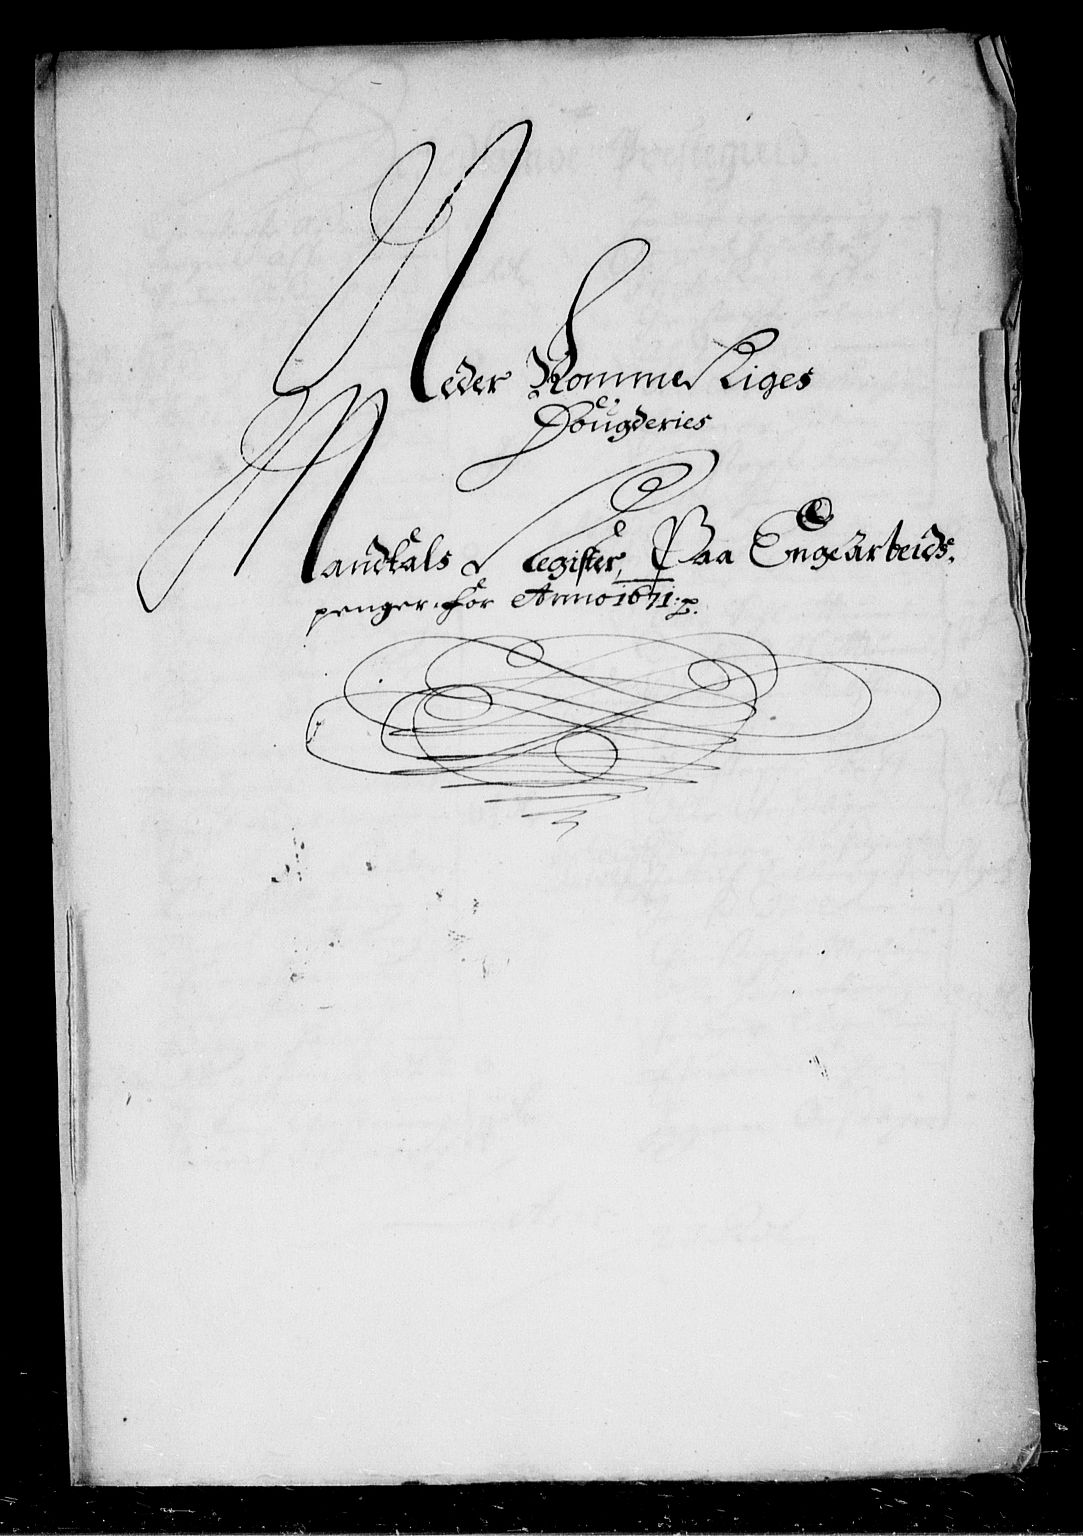 Neder Romme Riges
Fougderies
Mandtals Register, Paa Engearbeids
penger for Anno 1671. p.